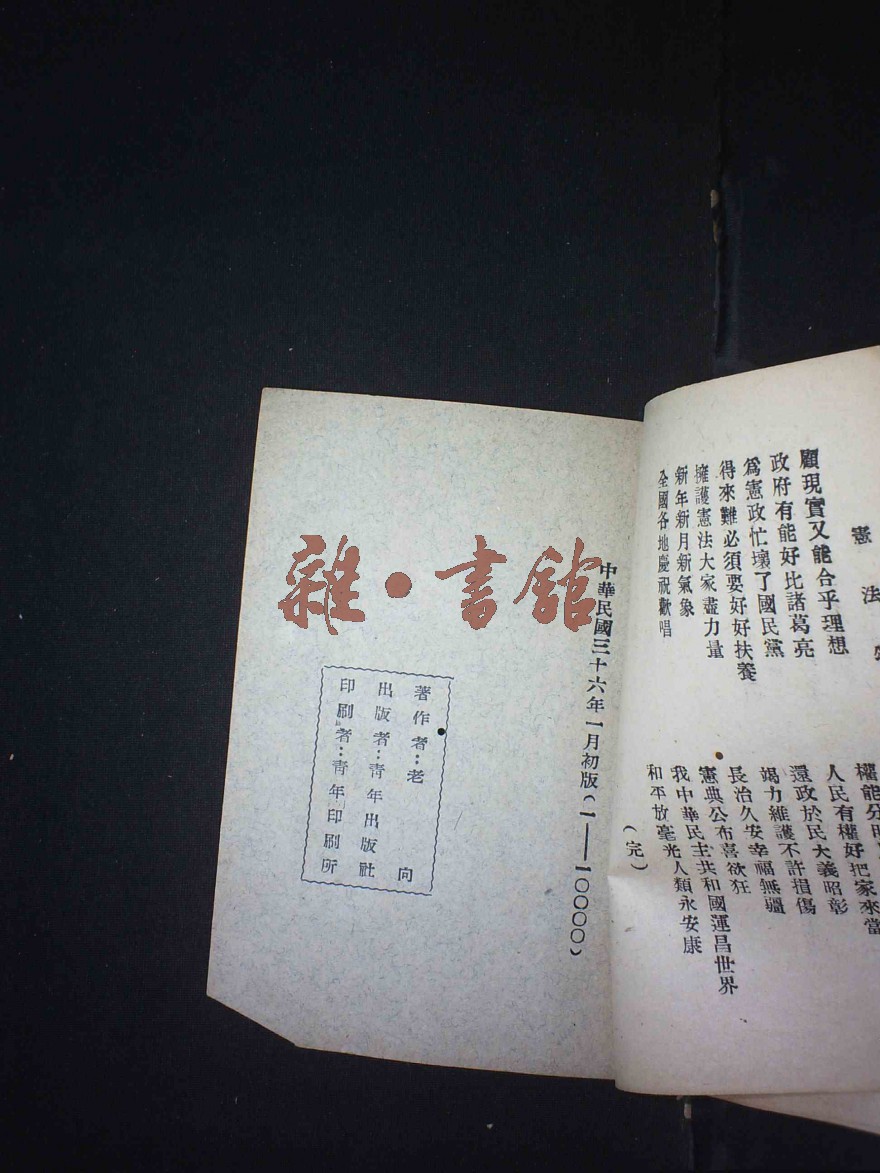 憲法
顧現實又能合乎理想
權能分
政府有能好比諸葛亮
人民有權好把家來當
爲憲政忙壞了國民黨
還政於民大義昭彰
得來難必須要好好扶養
竭力維護不許損傷
擁護憲法大家盡力量
長治久安幸福無疆
新年新月新氣象
憲典公布喜欲狂
全國各地慶祝歡唱
我中華民主共和國運昌世界
和平放毫光人類永安康
(完)
中華民國三十六年一月初版(一——一〇〇〇〇)
著作者:老向
出版者:青年出版社
印刷者:青年印刷所
雜·書館